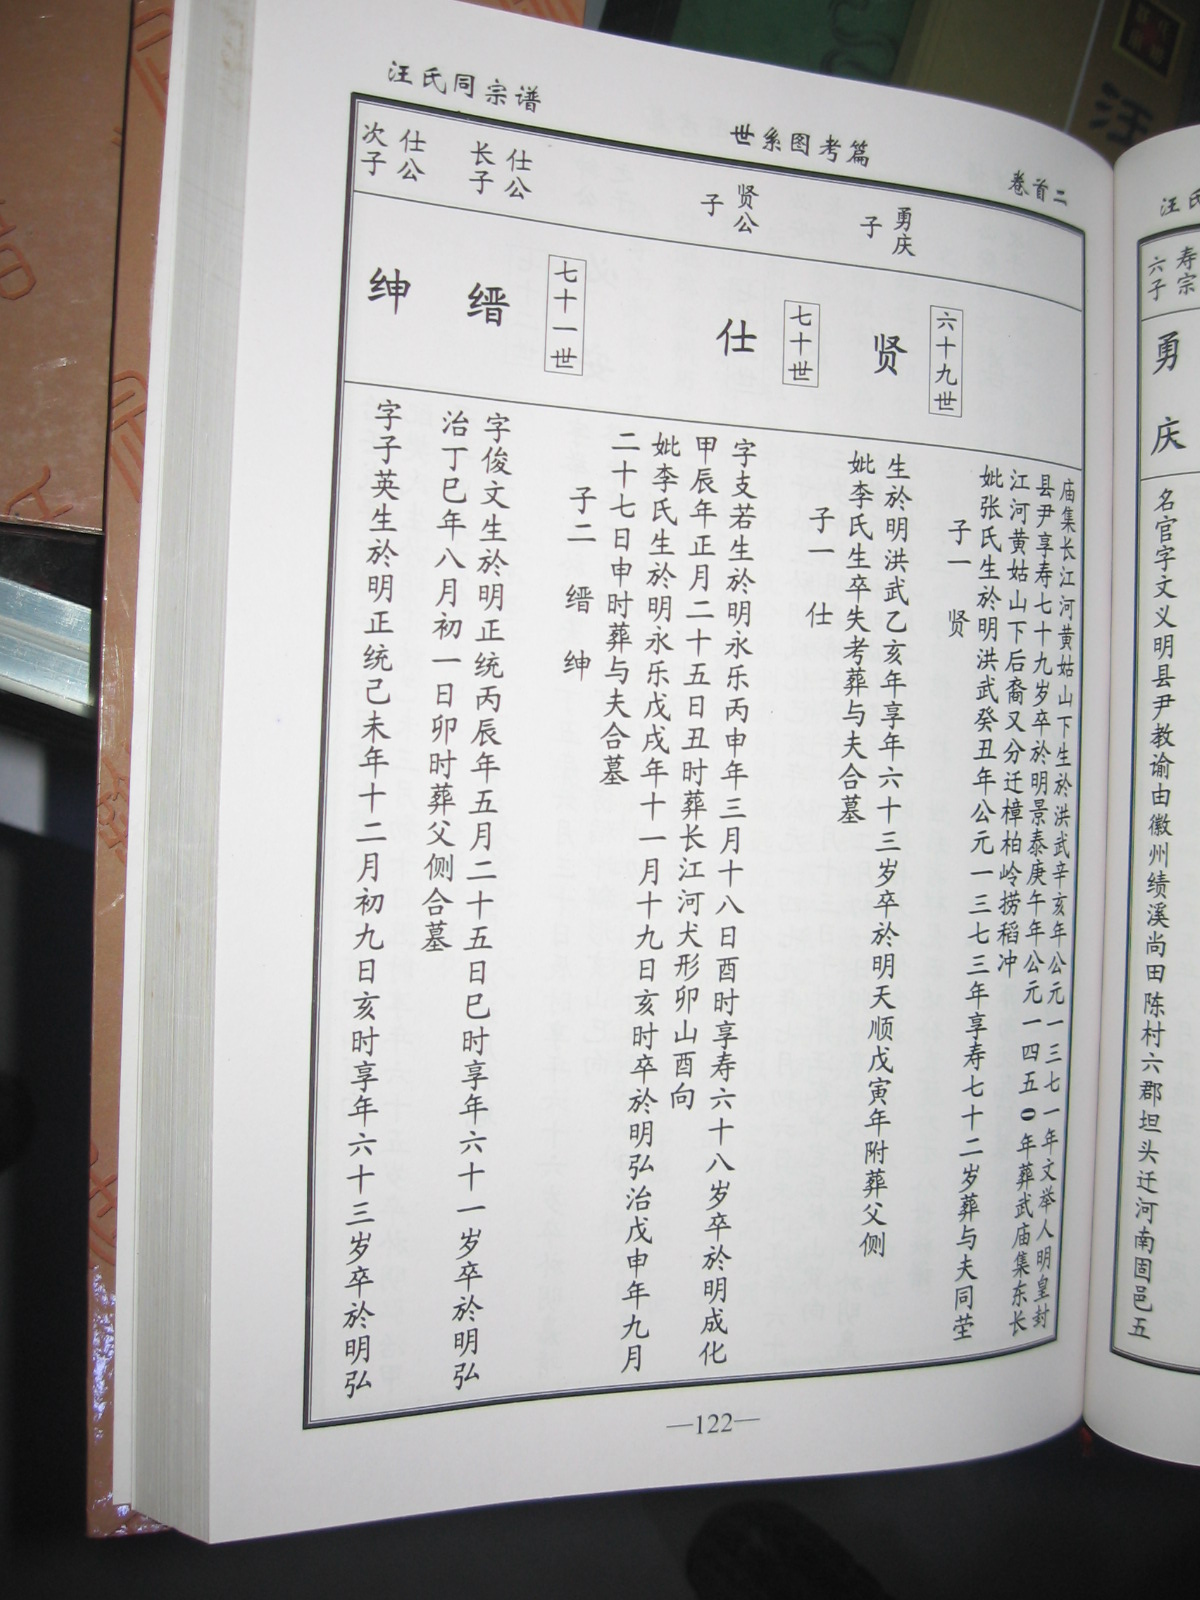 汪氏同宗谱
世系图考篇
卷首二
庙集长江河黄姑山下生於洪武辛亥年公元一三七一年文举人明皇封
县尹享寿七十九岁卒於明景泰庚午年公元一四五0年葬武庙集东长
江河黄姑山下后裔又分迁樟柏岭捞稻冲
妣张氏生於明洪武癸丑年公元一三七三年享寿七十二岁葬与夫同茔
子一 贤
六十九世
勇庆
子
贤
生於明洪武乙亥年享年六十三岁卒於明天顺戊寅年附葬父侧
妣李氏生卒失考葬与夫合墓
子一 仕
七十世
贤公
子
仕
字支若生於明永乐丙申年三月十八日酉时享寿六十八岁卒於明成化
甲辰年正月二十五日丑时葬长江河犬形卯山酉向
妣李氏生於明永乐戊戌年十一月十九日亥时卒於明弘治戊申年九月
二十七日申时葬与夫合墓
子二 缙 绅
七十一世
仕公
长子
缙
字俊文生於明正统丙辰年五月二十五日巳时享年六十一岁卒於明弘
治丁巳年八月初一日卯时葬父侧合墓
仕公
次子
绅
字子英生於明正统己未年十二月初九日亥时享年六十三岁卒於明弘
—122—
汪氏
寿宗
六子
勇庆
名官字文义明县尹教谕由徽州绩溪尚田陈村六郡坦头迁河南固邑五
汪